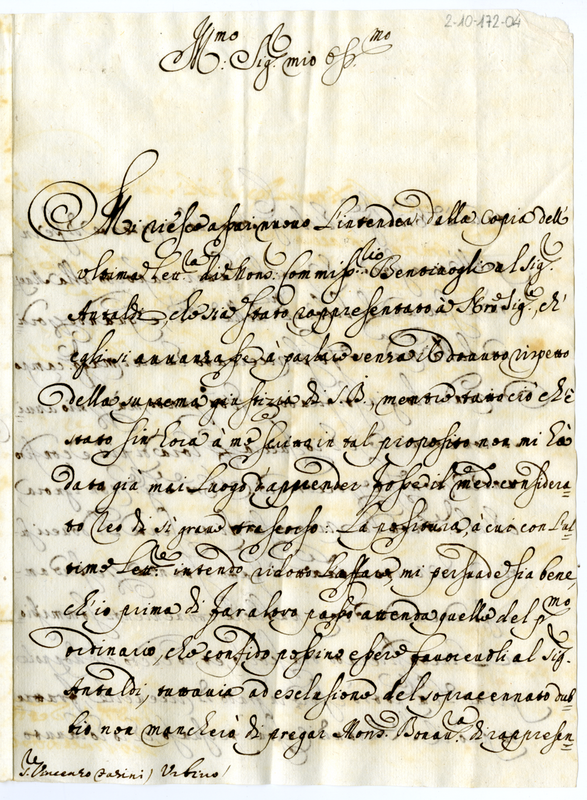 2-10-172-04
Ill.mo Sig.r mio Oss.mo
Mi riesce assai nuovo l'intender dalla Copia dell'
ultima Lett.ra di Mons. Commiss.rio Bentivogli al Sig.r
Antaldi, che sia stato rappresentato à N.ro Sig.re, ch'
egli si avvanzasse à parlare senza il dovuto rispetto
della suprema giustizia di S. B., mentre tutto ciò ch'è
stato sin hora à me scritto in tal proposito non mi hà
dato già mai luogo d'apprender fosse il med. considera-
to reo di sì grave trascorso. La positura, à cui con l'ul-
time Lett.re intendo ridotto l'affare, mi persuade sia bene,
ch'io prima di far altro passo attenda quelle del p.mo
ordinario, che confido possino essere favorevoli al Sig.r
Antaldi, tuttavia ad esclusione del sopracennato dub-
bio non mancherà di pregar Mons. Bonav.ra di rappresen-
S.r Vincenzo Urbino